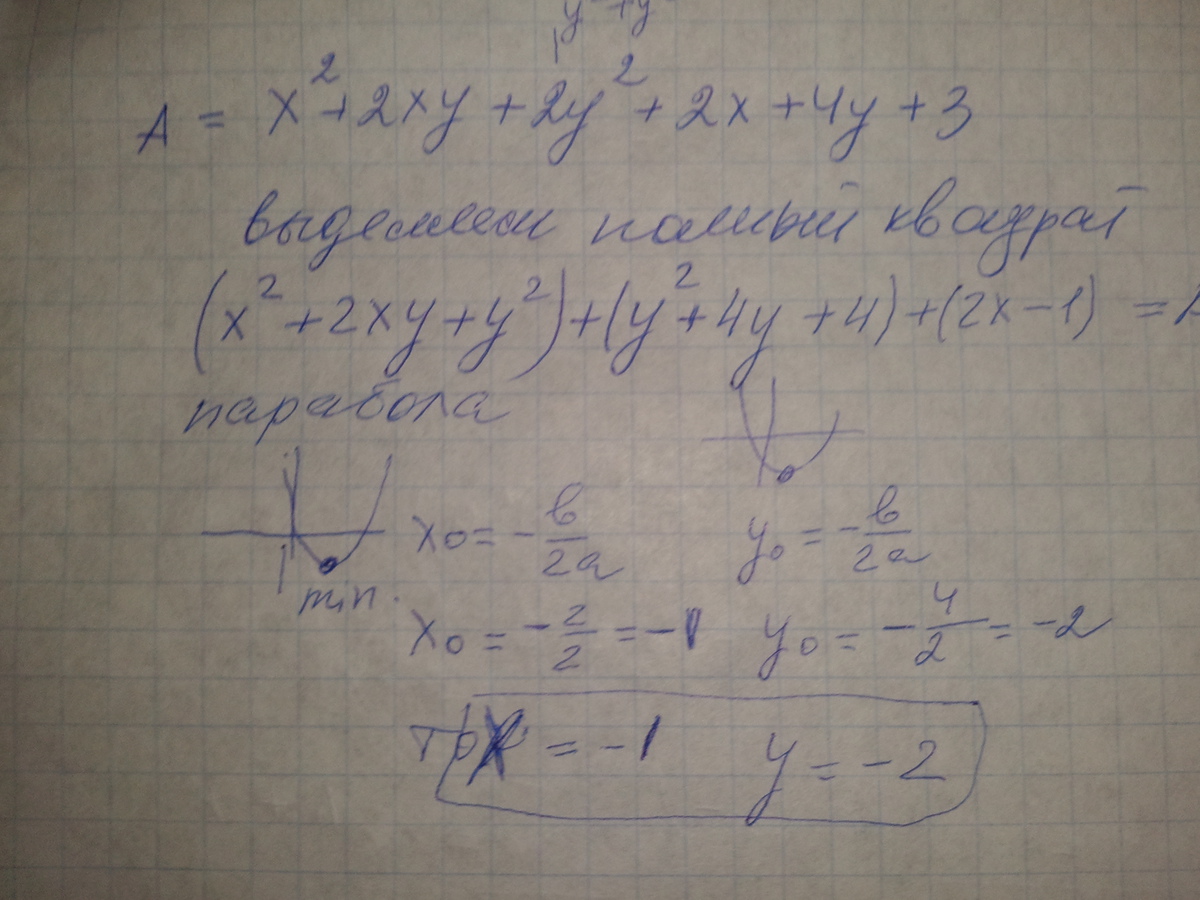 A = x² + 2xy + 2y² + 2x + 4y + 3
выделяем полный квадрат
(x² + 2xy + y²) + (y² + 4y + 4) + (2x − 1) =
парабола
min.
x₀ = − в/2a y₀ = − в/2a
x₀ = − 2/2 = −1 y₀ = − 4/2 = −2
x = −1 y = −2